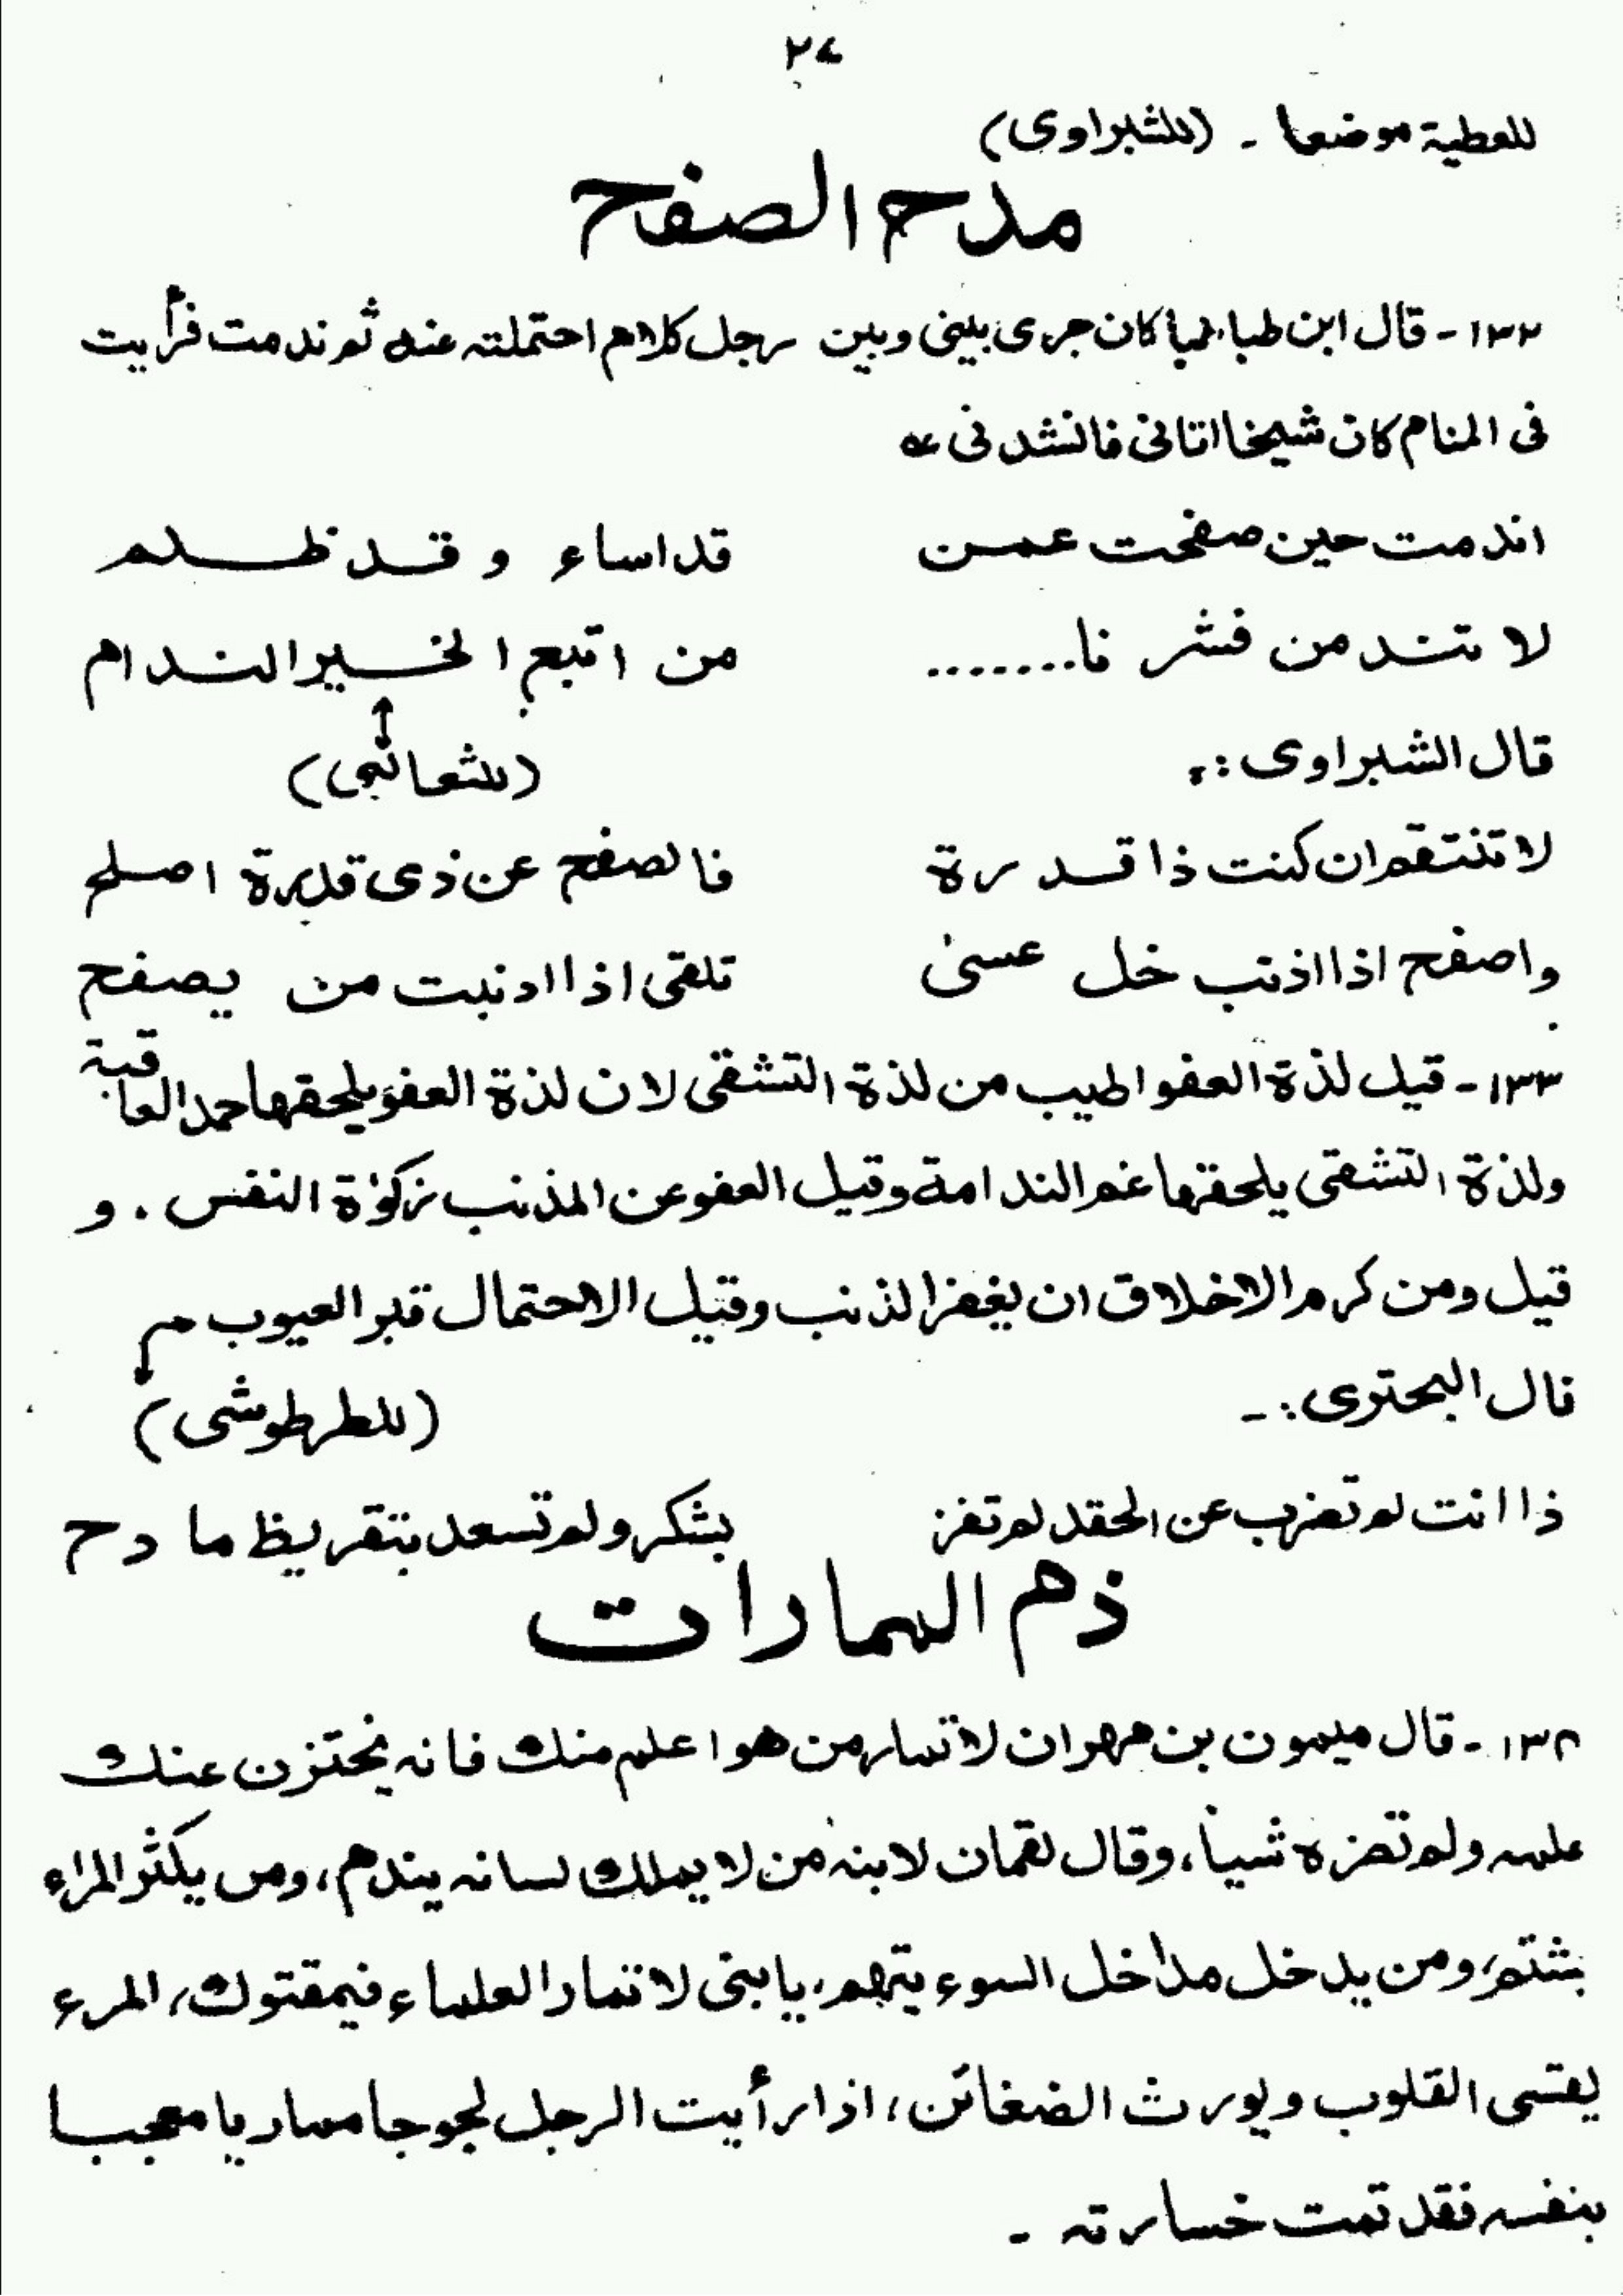 ٢٤
للعطية موضعا - (للشبراوى)
مدح الصفح
١٣٢ - قال ابن طباطبا كان جرى بينى وبين رجل كلام احتملته عنه ثم ندمت فرأيت
فى المنام كان شيخا اتانى فانشدنى
اندمت حين صفحت عمن قد اساء و قد ظلم
لا تندمن فشر نا....... من اتبع الخير الندام
قال الشبراوى :
(للثعالبى)
لا تنتقم ان كنت ذا قدرة فالصفح عن ذى قدرة اصلح
واصفح اذا اذنب خل عسىٰ تلقى اذا ادنبت من يصفح
١٣٣ - قيل لذة العفو اطيب من لذة التشفى لان لذة العفو يلحقها حمد العاقبة
ولذة التشفى يلحقها غم الندامة وقيل العفو عن المذنب زكوٰة النفس . و
قيل ومن كرم الاخلاق ان يغفر الذنب وقيل الاحتمال قبر العيوب
قال البحترى : -
(للطرطوشى)
ذا انت لم تضرب عن الحقد لم تفز بشكر ولم تسعد بتقريظ ما دح
ذم الممارات
١٣٤ - قال ميمون بن مهران لا تمار من هو اعلم منك فانه يختزن عنك
علمه ولم تضره شيأ، وقال لقمان لابنه من لا يملك لسانه يندم، ومن يكثر المراء
يشتم، ومن يدخل مداخل السوء يتهم، يا بنى لا تمار العلماء فيمقتوك، المرء
يقسى القلوب و يورث الضغائن، اذا رأيت الرجل لجوجا مماريا معجبا
بنفسه فقد تمت خسارته -